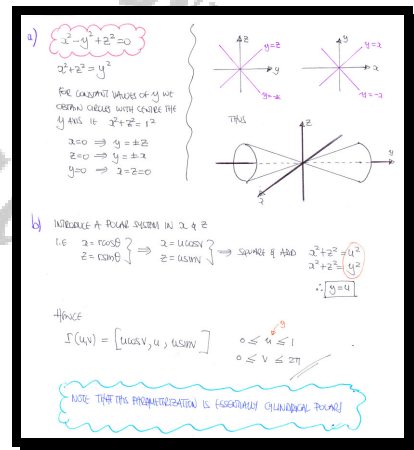 a) x²-y²+z²=0
x²+z²=y²
FOR CONSTANT VALUES OF y WE
OBTAIN CIRCLES WITH CENTRE THE
y AXIS IE x²+z²=1²
x=0 ⇒ y=±z
z=0 ⇒ y=±x
y=0 ⇒ x=z=0
z
y=z
y
y=-z
y
y=x
x
y=-x
THUS
z
y
x
b) INTRODUCE A POLAR SYSTEM IN x & z
I.E x=rcosθ } ⇒ x=ucosv } ⇒ SQUARE & ADD x²+z²=u²
z=rsinθ z=usinv x²+z²=y²
∴ y=u
HENCE
r(u,v) = [ucosv, u, usinv] 0 ≤ u ≤ 1
y
0 ≤ v ≤ 2π
NOTE THAT THIS PARAMETRIZATION IS ESSENTIALLY CYLINDRICAL POLARS